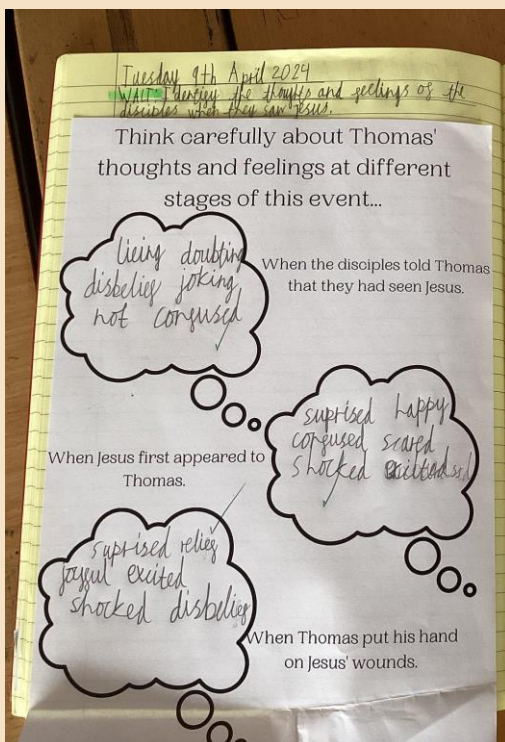 Tuesday 9th April 2024
WALT: Identify the thoughts and feelings of the
disciples when they saw Jesus.
Think carefully about Thomas'
thoughts and feelings at different
stages of this event...
lieing doubting
disbelief joking
not confused
When the disciples told Thomas
that they had seen Jesus.
suprised happy
confused scared
shocked
When Jesus first appeared to
Thomas.
suprised relief
joyful excited
shocked disbelief
When Thomas put his hand
on Jesus' wounds.